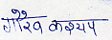 गौरव कश्यप